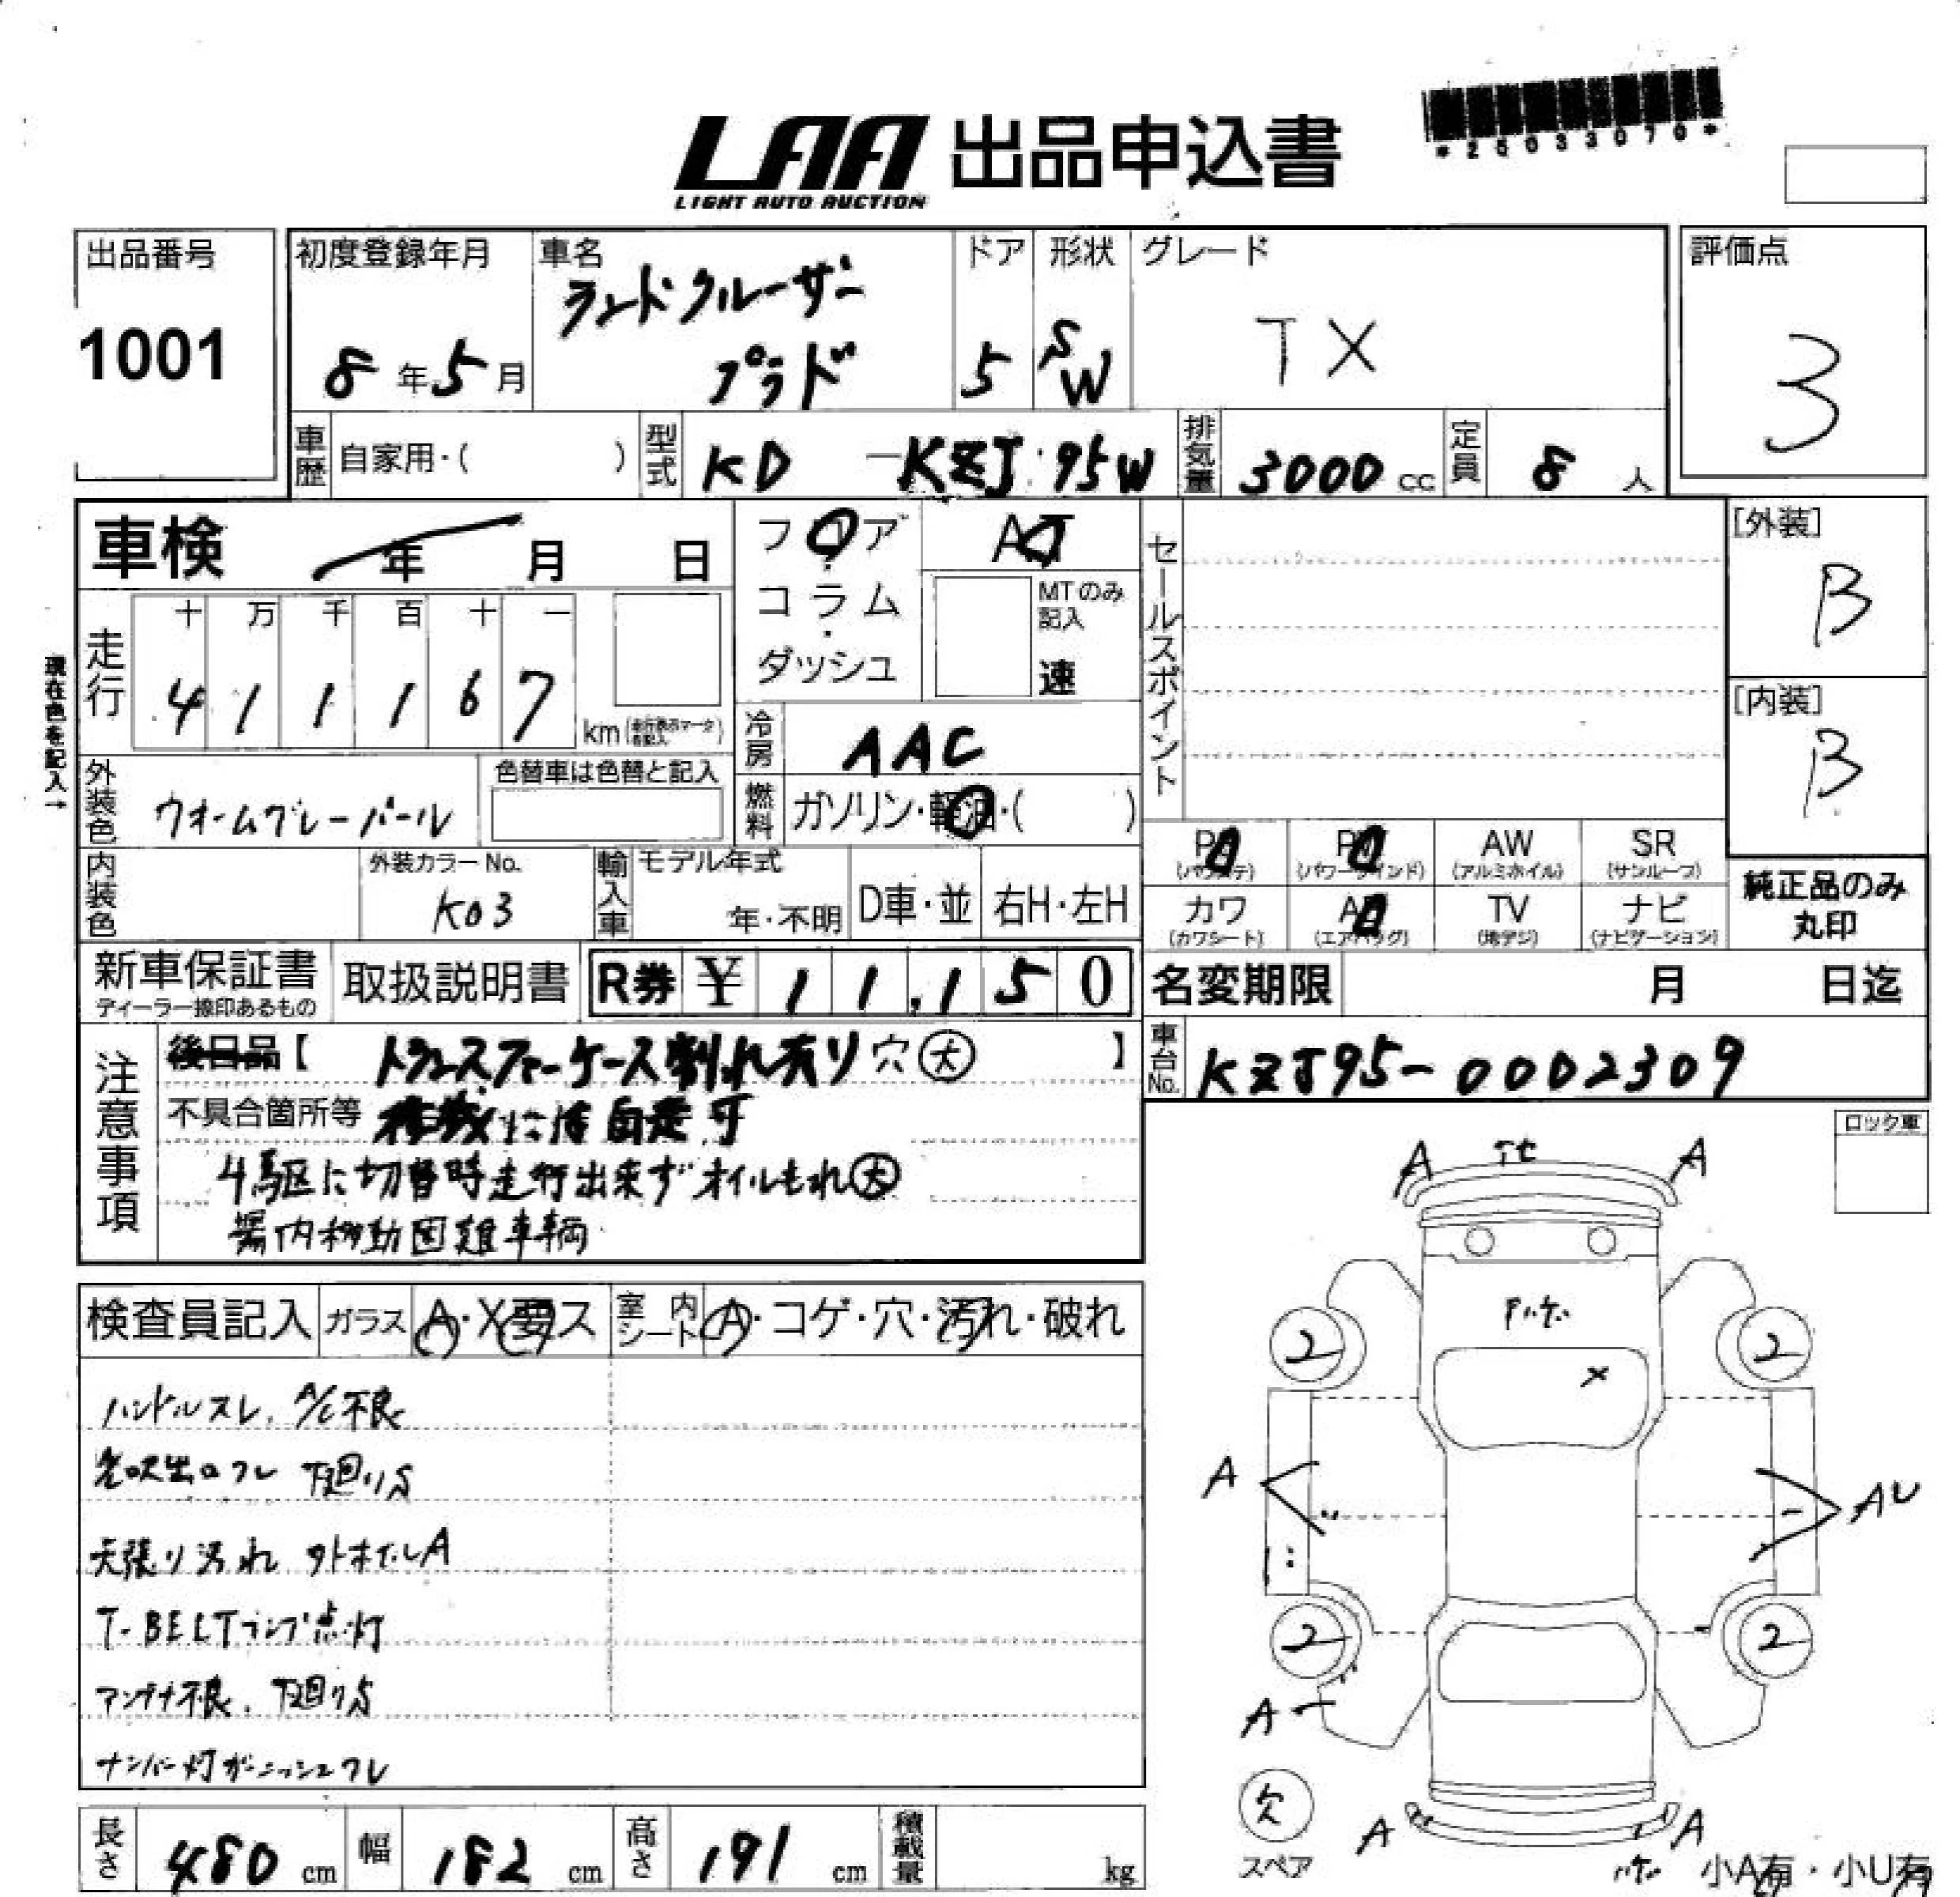 LAA 出品申込書
LIGHT AUTO AUCTION
*25033070*
出品番号
1001
初度登録年月
8年5月
車名
ランドクルーザー
プラド
ドア
5
形状
SW
グレード
TX
評価点
3
車歴 自家用・( )
型式 KD -KZJ95W
排気量 3000 cc
定員 8 人
車検 年 月 日
フロア
コラム
ダッシュ
AT
MTのみ
記入
速
セールスポイント
[外装]
B
[内装]
B
現在色を記入→
走行
十 万 千 百 十 一
4 1 1 1 6 7
km
冷房 AAC
外装色 ウオームグレーパール
色替車は色替と記入
燃料 ガソリン・軽油・( )
内装色
外装カラーNo.
K03
輸入車
モデル年式
年・不明
D車・並
右H・左H
PS
(パワステ)
PW
(パワーウインド)
AW
(アルミホイル)
SR
(サンルーフ)
カワ
(カワシート)
AB
(エアバッグ)
TV
(地デジ)
ナビ
(ナビゲーション)
純正品のみ
丸印
新車保証書
ディーラー捺印あるもの
取扱説明書
R券 ¥ 11,150
名変期限 月 日迄
注意事項
後日品【 トランスファーケース割れ有り 穴大 】
不具合箇所等 自走可
4駆に切替時走行出来ずオイルもれ大
場内移動困難車輌
車台No. KZJ95-0002309
ロック車
検査員記入
ガラス A・X要ス
室内シート A・コゲ・穴・汚れ・破れ
ハンドルスレ、A/C不良
吹出口ワレ 下廻りS
天張り汚れ 外ホイルA
T-BELTランプ点灯
アンテナ不良、下廻りS
ナンバー灯ガーニッシュワレ
A A
ハケ
2 2
X
A AU
2 2
A
欠
スペア
A A
ハケ
小A有・小U有
長さ 480 cm
幅 182 cm
高さ 191 cm
積載量 kg